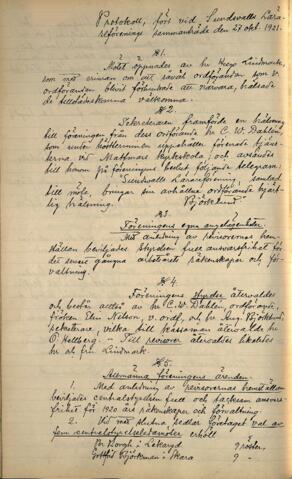 Protokoll, fört vid Sundsvalls Lära-
reförenings sammanträde den 27 okt. 1921.
§1.
Mötet öppnades av hr Hugo Lindmark,
som med erinran om att såväl ordföranden som v.
ordföranden blivit förhindrade att närvara, hälsade
de tillstädeskomna välkomna.
§2.
Sekreteraren framförde en hälsning
till föreningen från dess ordförande hr C. W. Dahlin
som under höstterminen uppehåller förenade tjäns-
terna vid Mattmars kyrkskola; och avsändes
till honom på föreningens beslut följande telegram:
Sundsvalls Lärareförening, samlad
till möte, bringar sin avhållne ordförande hjärt-
lig hälsning. Björklund.
§3.
Föreningens egna angelägenheter.
Med anledning av revisorernas hem-
ställan beviljades styrelsen full ansvarsfrihet för
det senast gångna arbetsårets räkenskaper och för-
valtning.
§4.
Föreningens styrelse återvaldes
och består alltså av hr C. W. Dahlin, ordförande,
fröken Elin Nelson, v. ordf., och hr Björklund,
sekreterare, vilka till kassaman återvalde hr
P. Hellberg. - Till revisorer återvaldes likaledes
hr och frk Lindmark.
§5.
Allmänna föreningens ärenden.
1. Med anledning av revisorernas hemställan
beviljades centralstyrelsen full och tacksam ansvars-
frihet för 1920 års räkenskaper och förvaltning.
2. Vid med slutna sedlar företaget val av
fem centralstyrelseledamöter erhöll
Pr Borgh i Lekaryd 9 röster.
Gottfrid Björkman i Skara 9 -